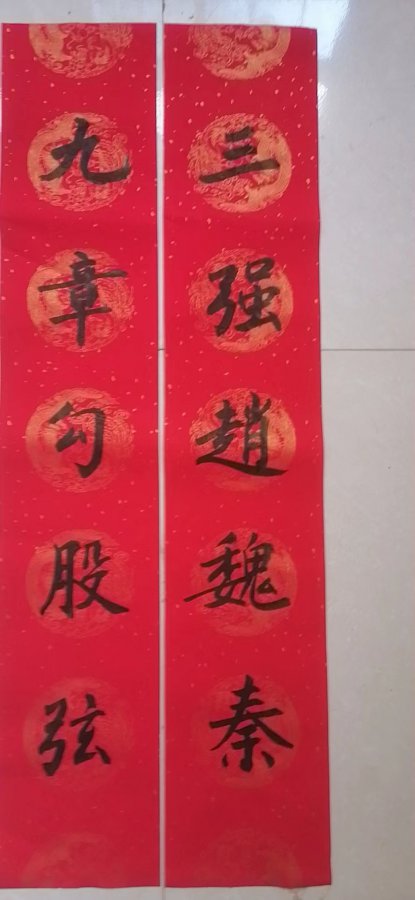 三强趙魏秦
九章勾股弦